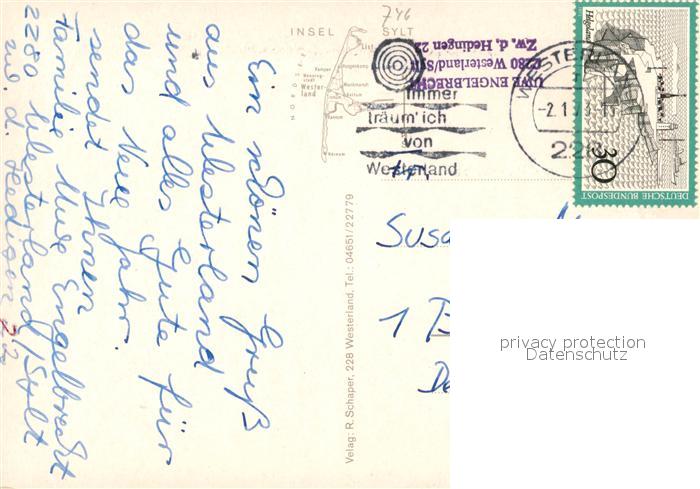 Ein schönen Gruß
aus Westerland
und alles Gute für
das Neue Jahr.
sendet Ihnen
Familie Uwe Engelbrecht
2280 Westerland/Sylt
zw. d. Hedigen 22
746
INSEL SYLT
List
Kampen
Wester-
land
Rantum
Hörnum
NORDSEE
UWE ENGELBRECHT
2280 Westerland/Sylt
Zw. d. Hedingen 22
Immer
träum' ich
von
Westerland
WESTERL
-2.1.
228
Helgoland
30
DEUTSCHE BUNDESPOST
Verlag: R. Schaper, 228 Westerland, Tel.: 04651/22779
Susa
1 B
De
privacy protection
Datenschutz